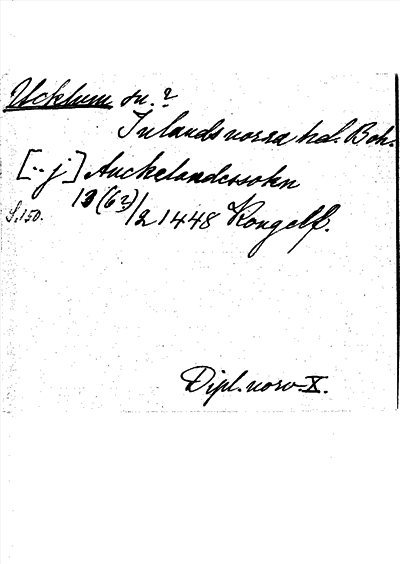 Ucklum sn.?
Inlands norra hd. Boh.
[..j] Auckelandessohn
S.150. 13 (6?)/2 1448 Kongelf.
Dipl. norv. X.